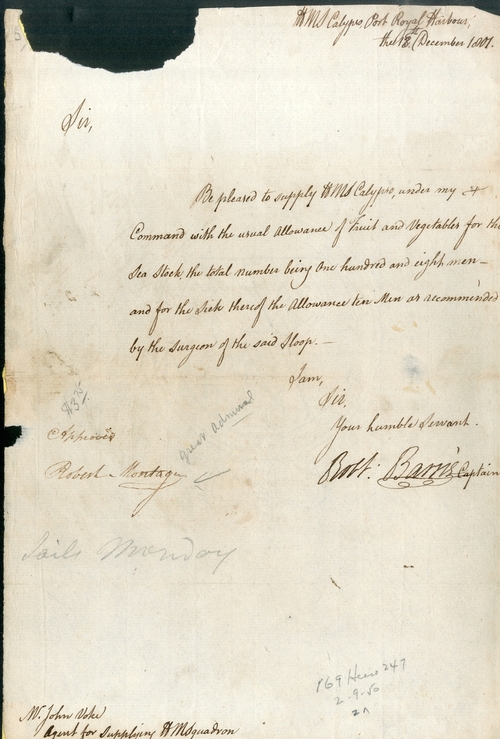 HMS Calypso, Port Royal Harbour,
the 18th December 1801.
Sir,
Be pleased to supply HMS Calypso, under my
Command with the usual Allowance of Fruit and Vegetables for the
Sea Stock the total number being One hundred and eight men
and for the Sick thereof the Allowance ten Men as recommended
by the Surgeon of the said Sloop.
I am,
Sir,
Your humble Servant.
Robt: Barrie Captain
$3.75
Approved
great admiral
Robert Montagu
Sails Monday
P69 247
2-9-50
Mr. John Voke
Agent for Supplying HM Squadron